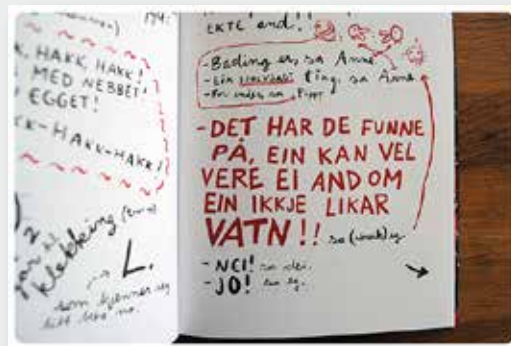 194:
HAKK, HAKK!
MED NEBBET!
EGGET!
KK-HAKK-HAKK!
klekking
L.
som kjenner seg
litt
EKTE and!!
-Bading er, sa Anne
-Ein ting, sa Anne
-DET HAR DE FUNNE
PÅ, EIN KAN VEL
VERE EI AND OM
EIN IKKJE LIKAR
VATN!! sa eg
-NEI! sa dei.
-JO! sa eg.